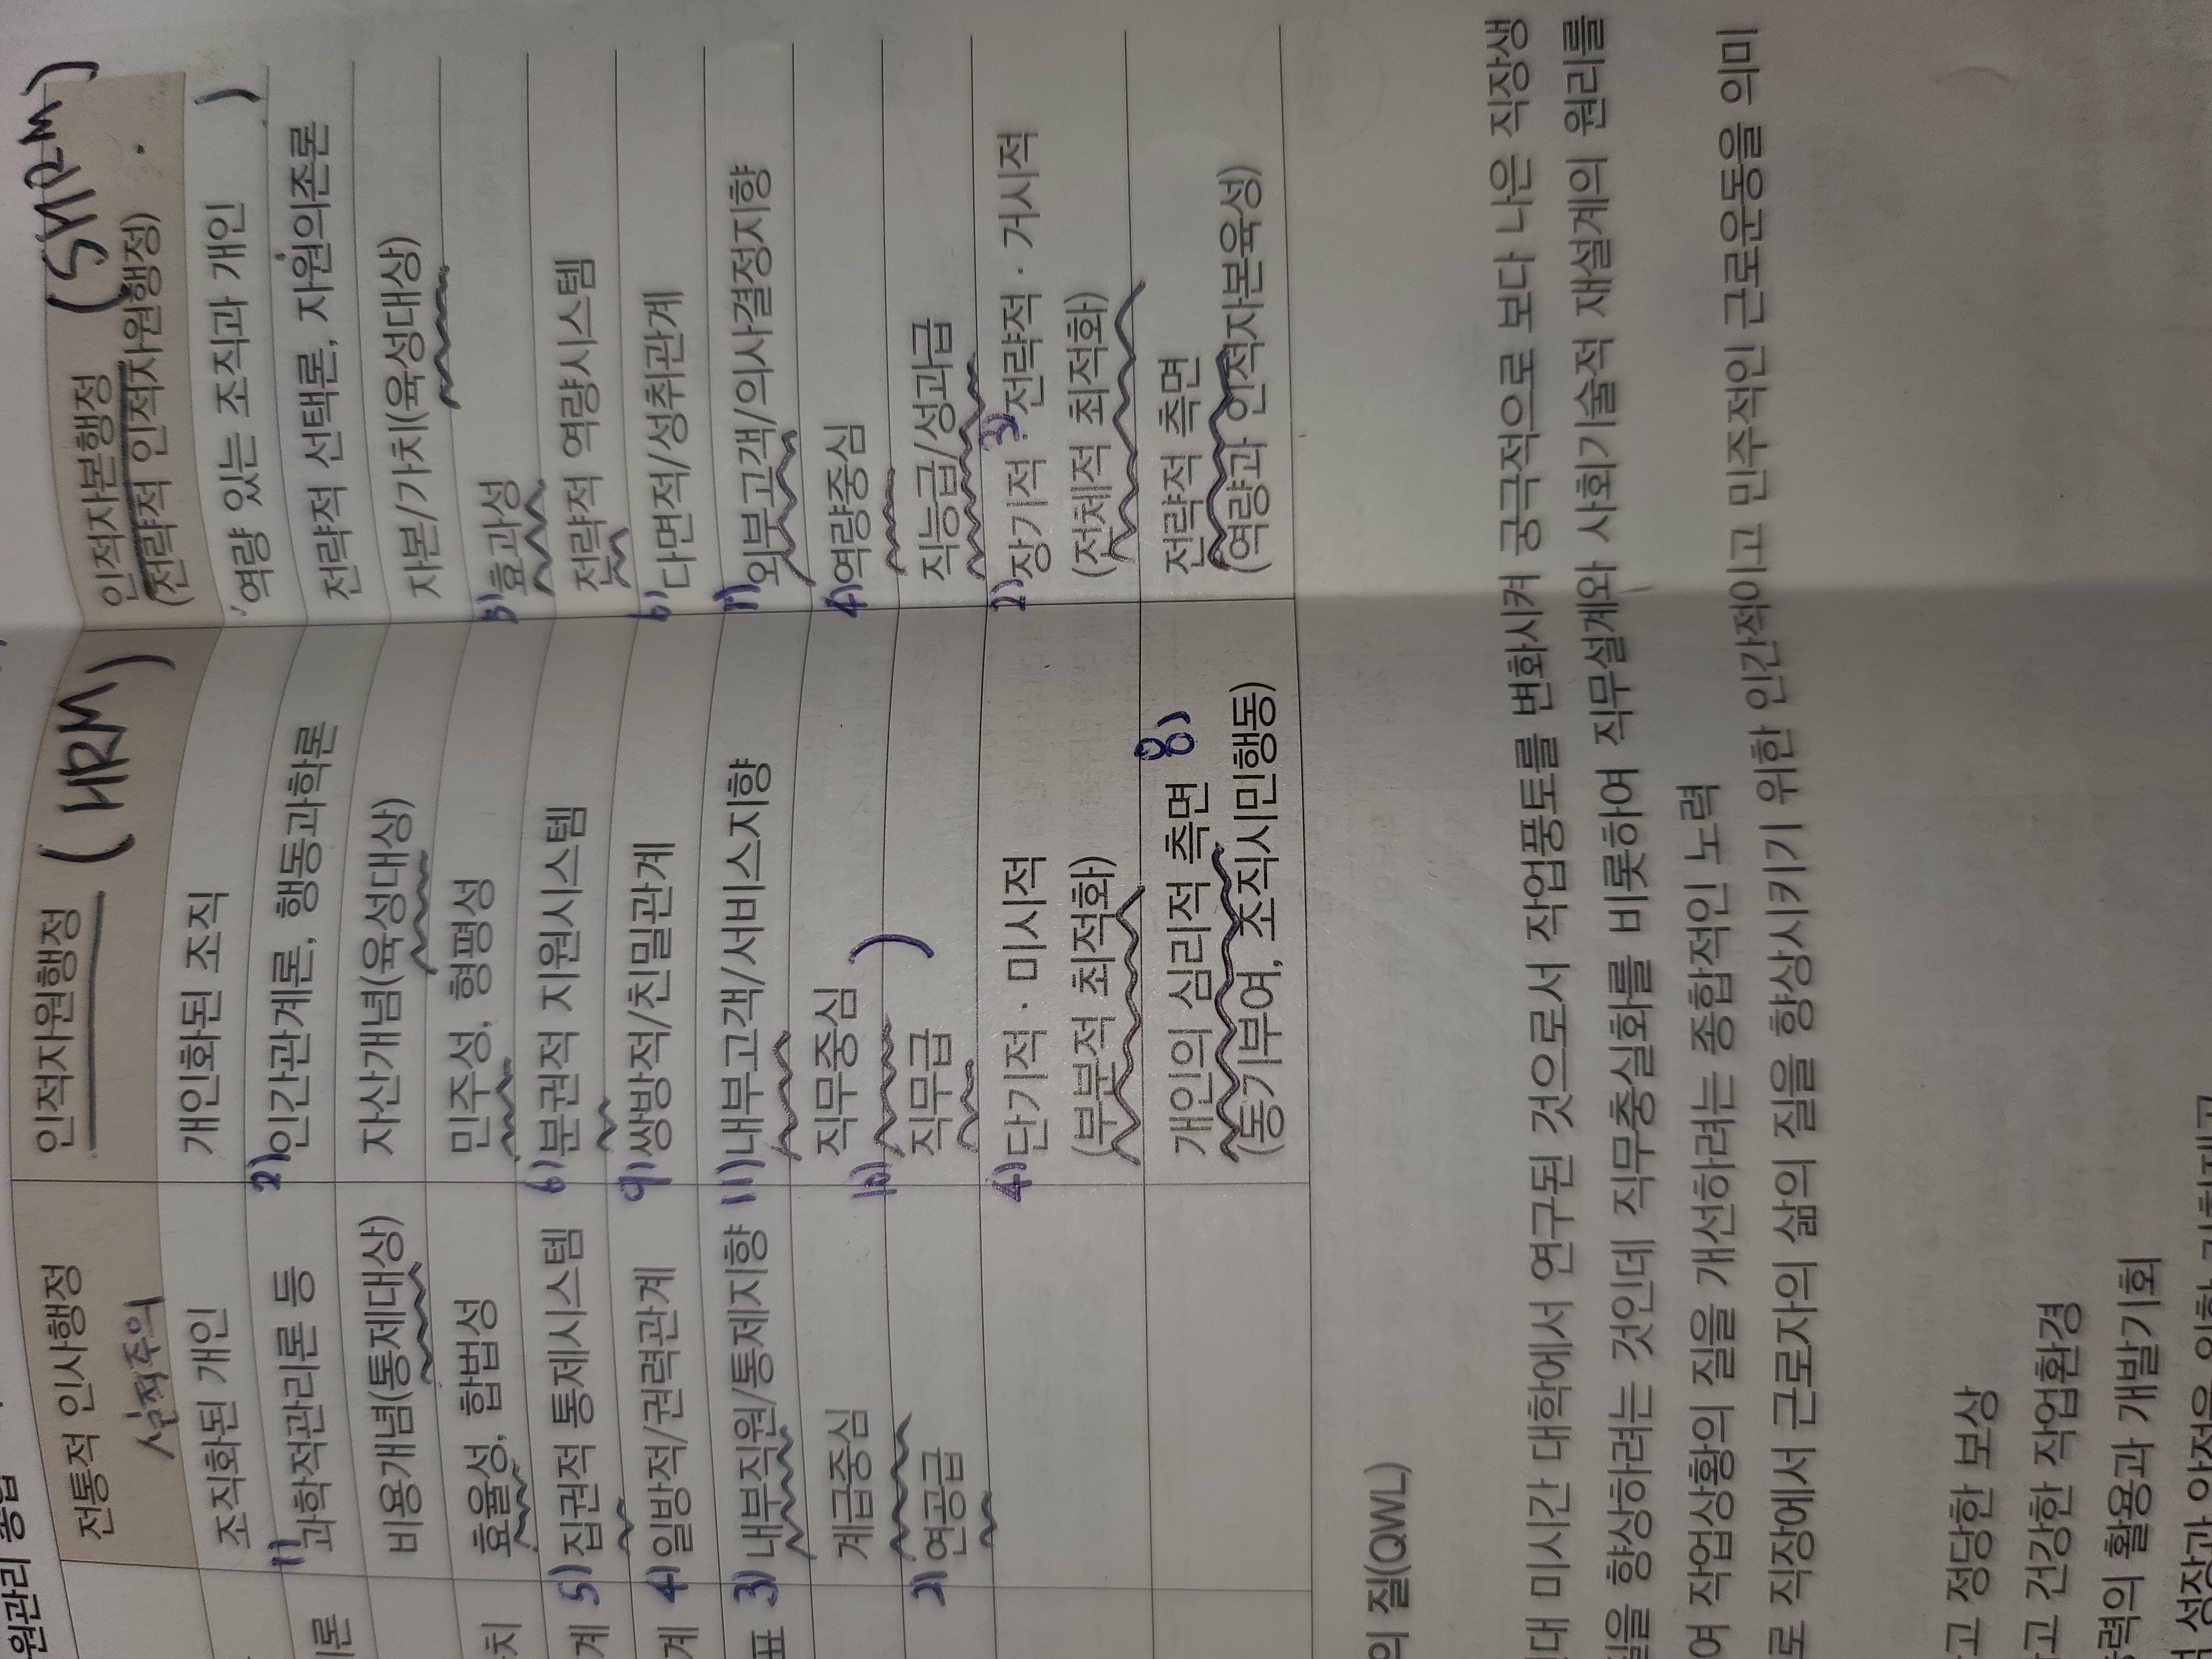 원관리 종합
전통적 인사행정 인적자원행정 (HRM) 인적자본행정 (SHRM)
실적주의 (전략적 인적자원행정)
조직화된 개인 개인화된 조직 역량 있는 조직과 개인 )
이론 1) 과학적관리론 등 2) 인간관계론, 행동과학론 전략적 선택론, 자원의존론
비용개념(통제대상) 자산개념(육성대상) 자본/가치(육성대상)
치 효율성, 합법성 민주성, 형평성 3) 효과성
계 5) 집권적 통제시스템 6) 분권적 지원시스템 전략적 역량시스템
계 4) 일방적/권력관계 9) 쌍방적/친밀관계 6) 다면적/성취관계
표 3) 내부직원/통제지향 11) 내부고객/서비스지향 7) 외부고객/의사결정지향
계급중심 직무중심 4) 역량중심
2) 연공급 10) 직무급 ) 직능급/성과급
4) 단기적 · 미시적 2) 장기적 · 3) 전략적 · 거시적
(부분적 최적화) (전체적 최적화)
개인의 심리적 측면 8) 전략적 측면
(동기부여, 조직시민행동) (역량과 인적자본육성)
의 질(QWL)
대 미시간 대학에서 연구된 것으로서 작업풍토를 변화시켜 궁극적으로 보다 나은 직장생
질을 향상하려는 것인데 직무충실화를 비롯하여 직무설계와 사회기술적 재설계의 원리를
여 작업상황의 질을 개선하려는 종합적인 노력
로 직장에서 근로자의 삶의 질을 향상시키기 위한 인간적이고 민주적인 근로운동을 의미
고 정당한 보상
고 건강한 작업환경
능력의 활용과 개발기회
성장과 안정을 위한